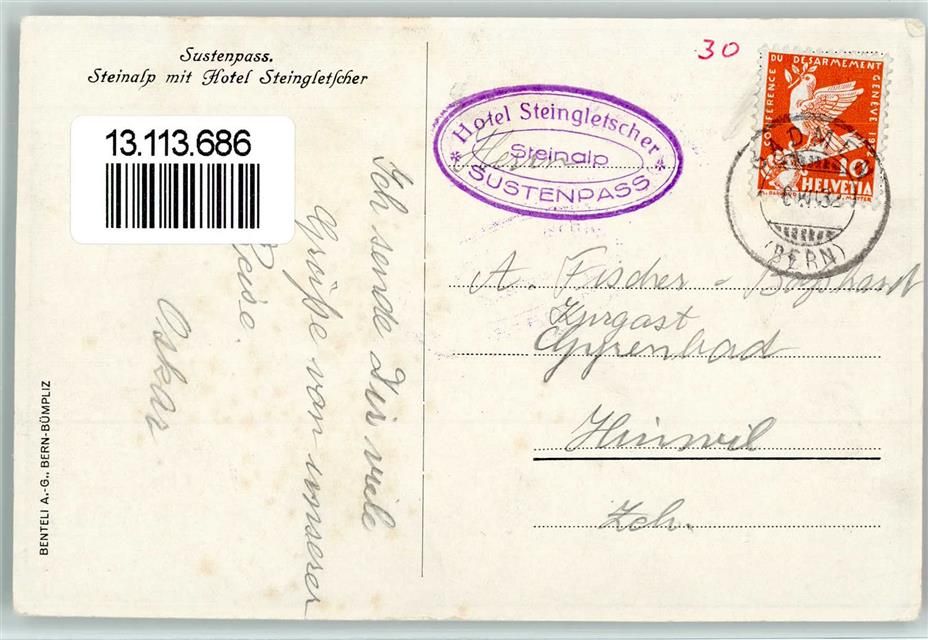 Sustenpass.
Steinalp mit Hotel Steingletscher
13.113.686
Ich sende Dir viele
Grüsse von unserer
Reise.
Oskar
BENTELI A.-G., BERN-BÜMPLIZ
30
* Hotel Steingletscher *
Steinalp
SUSTENPASS
Herrn
CONFERENCE DU DESARMEMENT GENEVE
10
HELVETIA
(BERN)
A. Fischer -
Kurgast
Gyrenbad
Hinwil
Zch.